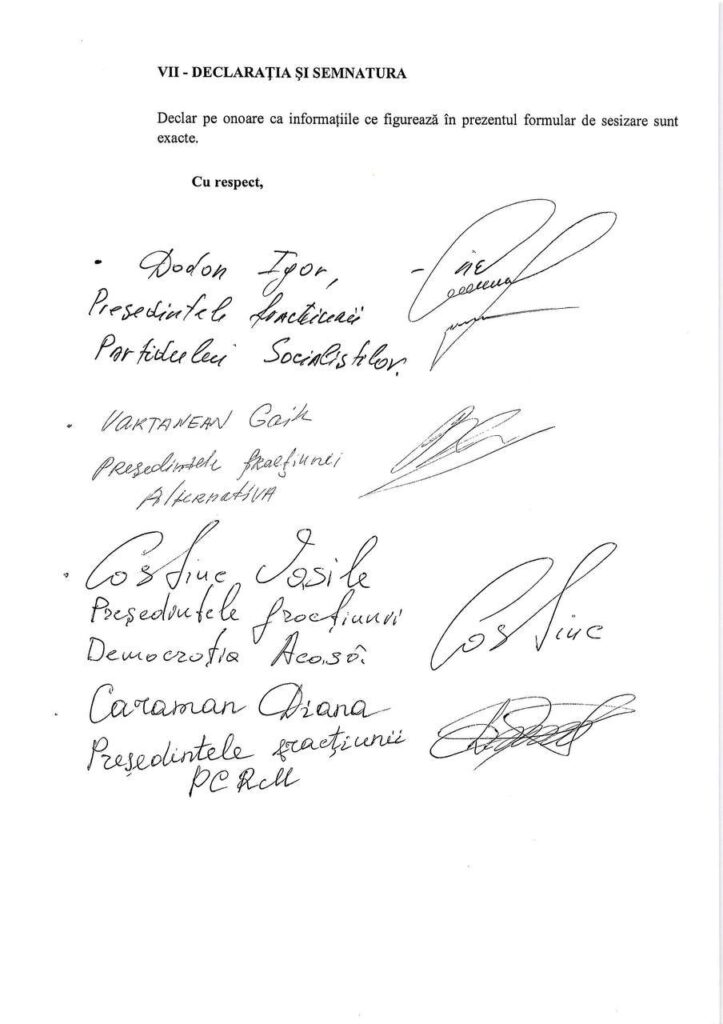 VII - DECLARAȚIA ȘI SEMNATURA
Declar pe onoare ca informațiile ce figurează în prezentul formular de sesizare sunt
exacte.
Cu respect,
Dodon Igor,
Președintele fracțiunii
Partidului Socialistilor.
VARTANEAN Gaik
Președintele fracțiunei
Alternativa
Costiuc Vasile
Președintele fracțiunii
Democrația Acasă.
Caraman Diana
Președintele fracțiunii
PCRM
Costiuc